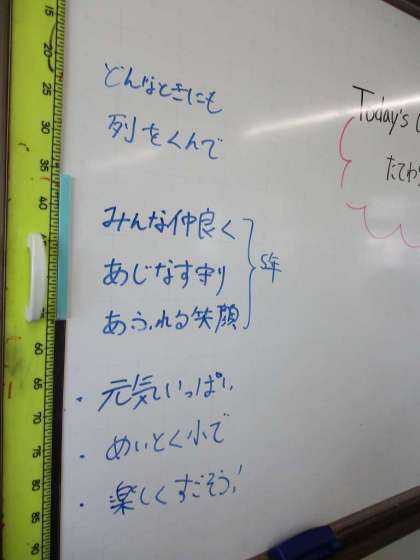 どんなときにも
列をくんで
みんな仲良く
あじなす守り
あふれる笑顔
5年
・元気いっぱい
・めいとく小で
・楽しくすごそう!
Today's
たてわ
15
20
25
30
35
40
60
65
70
75
80
85
90